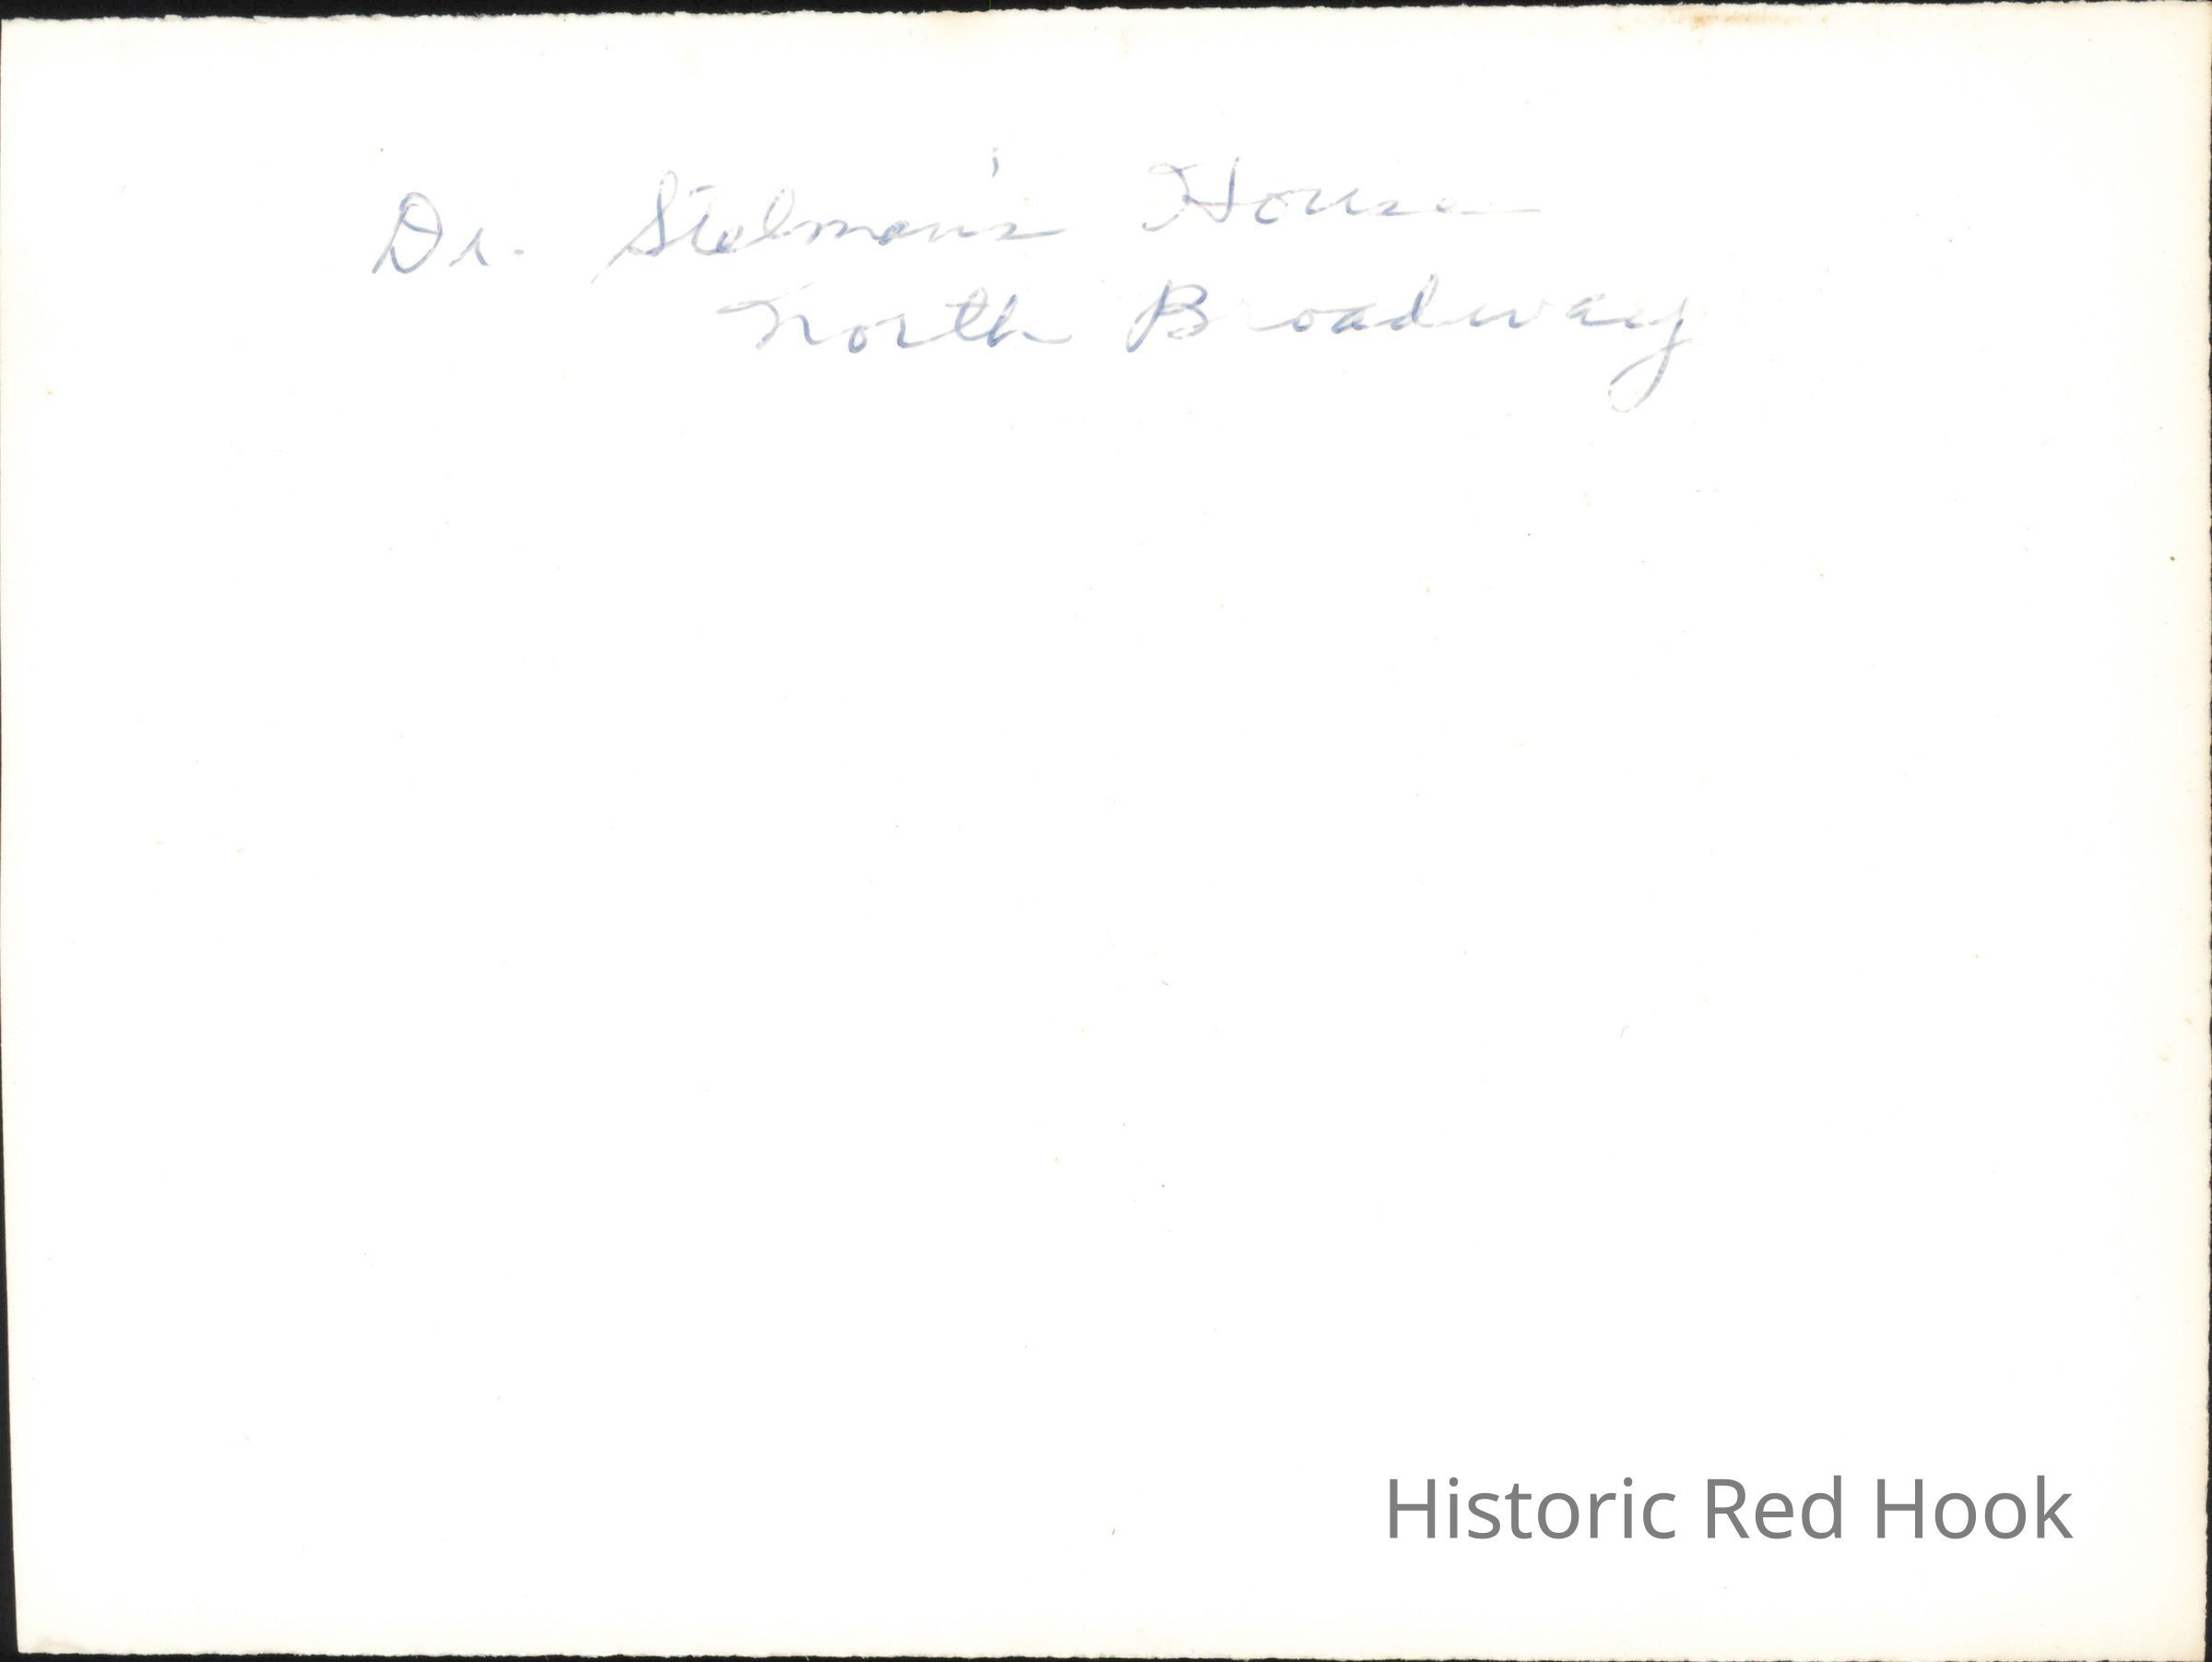 Dr. Stelman's House
North Broadway
Historic Red Hook